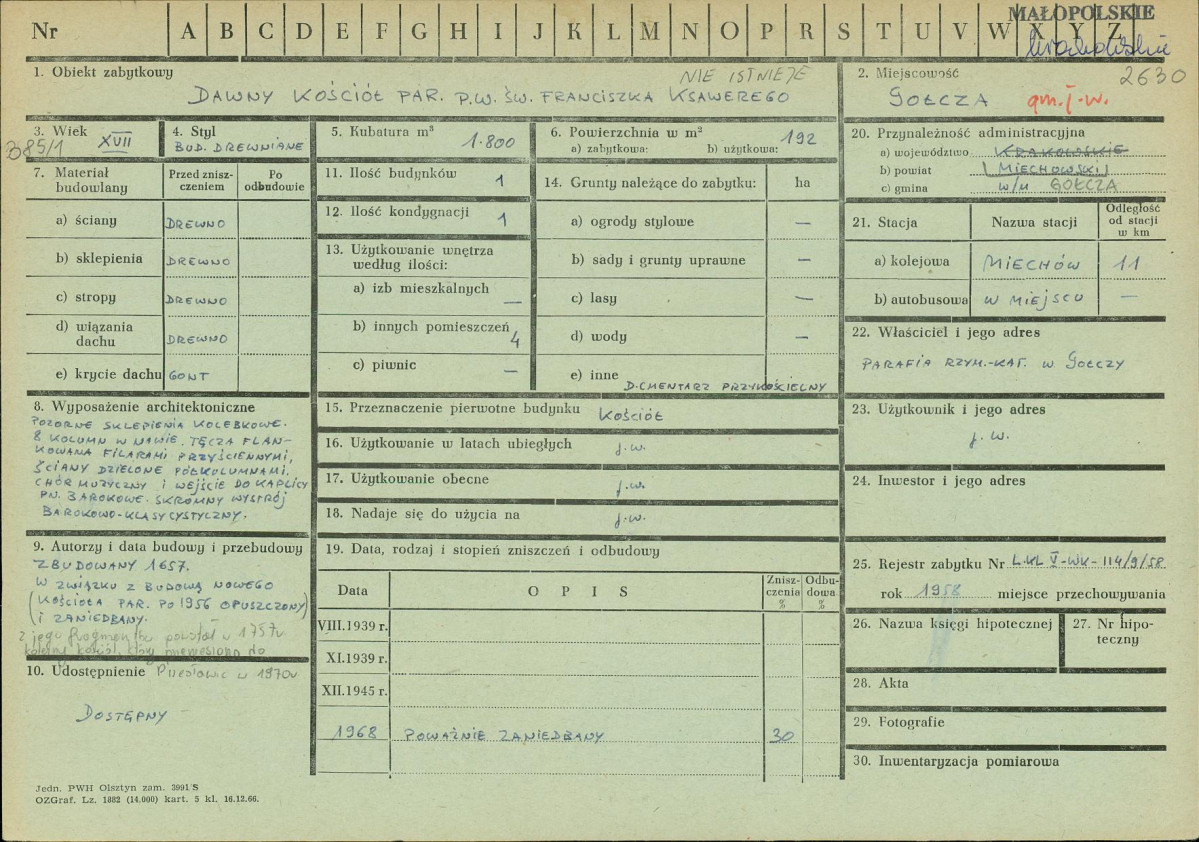 MAŁOPOLSKIE
Nr A B C D E F G H I J K L M N O P R S T U V W X Y Z
1. Obiekt zabytkowy
NIE ISTNIEJE
DAWNY KOŚCIÓŁ PAR. P.W. ŚW. FRANCISZKA KSAWEREGO
2. Miejscowość
2630
GOŁCZA gm. j.w.
3. Wiek
XVII
385/1
4. Styl
BUD. DREWNIANE
5. Kubatura m³
1.800
6. Powierzchnia w m²
a) zabytkowa: b) użytkowa: 192
20. Przynależność administracyjna
a) województwo KRAKOWSKIE
b) powiat MIECHOWSKI
c) gmina w/m GOŁCZA
7. Materiał budowlany
Przed zniszczeniem
Po odbudowie
a) ściany DREWNO
b) sklepienia DREWNO
c) stropy DREWNO
d) wiązania dachu DREWNO
e) krycie dachu GONT
11. Ilość budynków 1
12. Ilość kondygnacji 1
13. Użytkowanie wnętrza
według ilości:
a) izb mieszkalnych —
b) innych pomieszczeń 4
c) piwnic —
14. Grunty należące do zabytku: ha
a) ogrody stylowe —
b) sady i grunty uprawne —
c) lasy —
d) wody —
e) inne
D. CMENTARZ PRZYKOŚCIELNY
21. Stacja
Nazwa stacji
Odległość
od stacji
w km
a) kolejowa MIECHÓW 11
b) autobusowa W MIEJSCU —
22. Właściciel i jego adres
PARAFIA RZYM.-KAT. W GOŁCZY
23. Użytkownik i jego adres
j.w.
24. Inwestor i jego adres
8. Wyposażenie architektoniczne
POZORNE SKLEPIENIA KOLEBKOWE.
8 KOLUMN W NAWIE. TĘCZA FLAN-
KOWANA FILARAMI PRZYŚCIENNYMI,
ŚCIANY DZIELONE PÓŁKOLUMNAMI.
CHÓR MUZYCZNY I WEJŚCIE DO KAPLICY
PN. BAROKOWE. SKROMNY WYSTRÓJ
BAROKOWO-KLASYCYSTYCZNY.
15. Przeznaczenie pierwotne budynku KOŚCIÓŁ
16. Użytkowanie w latach ubiegłych j.w.
17. Użytkowanie obecne j.w.
18. Nadaje się do użycia na j.w.
9. Autorzy i data budowy i przebudowy
ZBUDOWANY 1657.
W ZWIĄZKU Z BUDOWĄ NOWEGO
(KOŚCIOŁA PAR. PO 1956 OPUSZCZONY)
I ZANIEDBANY.
z jego fragmentów powstał w 1757r
kolejny kościół, który przeniesiono do
10. Udostępnienie w 1970r
DOSTĘPNY
19. Data, rodzaj i stopień zniszczeń i odbudowy
Data
O P I S
Zniszczenia %
Odbudowa %
VIII.1939 r.
XI.1939 r.
XII.1945 r.
1968 POWAŻNIE ZANIEDBANY 30
25. Rejestr zabytku Nr L.KL V-WK-114/9/58
rok 1958 miejsce przechowywania
26. Nazwa księgi hipotecznej
27. Nr hipoteczny
28. Akta
29. Fotografie
30. Inwentaryzacja pomiarowa
Jedn. PWH Olsztyn zam. 3991/S
OZGraf. Lz. 1882 (14.000) kart. 5 kl. 16.12.66.